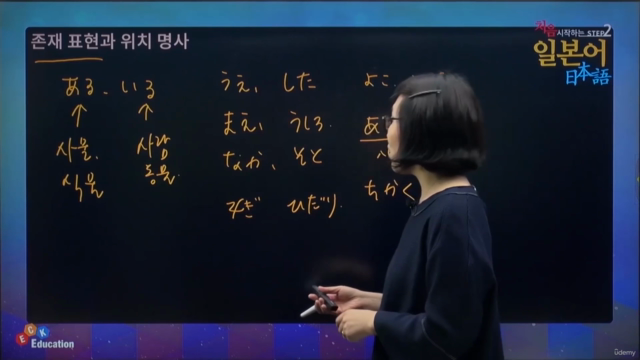 존재 표현과 위치 명사
처음 시작하는 STEP2
일본어
日本語
ある、いる
↑ ↑
사물. 사람
식물 동물.
うえ、した よこ
まえ、うしろ あ
なか、そと
みぎ ひだり.
ちかく
ECK
Education
ûdemy